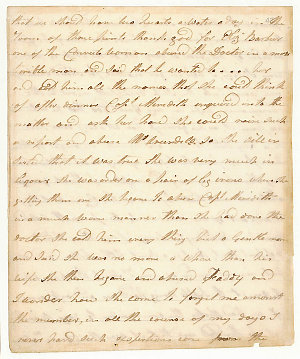 that we should have two quarts a water a day in the
room of three pints thank god for Eliz. Barber
one of the Convict women abused the Doctor in a most
terrible manner and said that he wanted to her
and called him all the names that she could think
of after dinner Capt Meredith enquired into the
matter and ask her how she could raise such
a report and abuse Mr so she still in
sisted that it was true She was very much in
liquor she was order on a pair of leg irons when she
getting them on she began to abuse Capt Meredith
in a much worse manner than she had done the
doctor she called him every thing but a Gentleman
and said she was no more a whore than his
wife she then began and abused Faddy and
I wonder how she came to forget me amonst
the number in all the course of my days I
never hard such expertions come from the